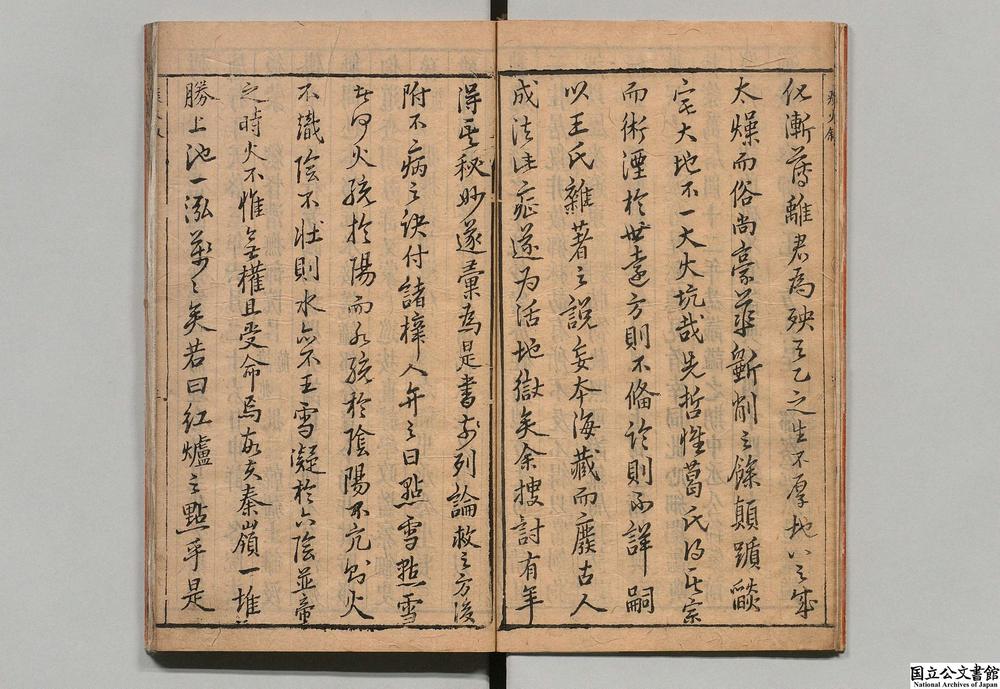 化漸薄離君為殃天乙之生不厚地以之成
太燥而俗尚豪華斲削之餘顛躓燄
宅大地不一大火坑哉先哲惟葛氏得其宗
而術湮於世遠方則不備論則不詳嗣
以王氏雜著之說妄本海藏而廢古人
成法注症遂为活地獄矣余搜討有年
得其秘妙遂彙為是書前列論救之方後
附不二病之訣付諸梓人弁之曰點雪點雪
者何火統於陽而水統於陰陽不亢則火
不熾陰不壯則水亦不王雪凝於六陰並帝
之時火不惟無權且受命焉故亥秦嶺一堆
勝上池一泓萬萬矣若曰紅爐之點乎是
国立公文書館
National Archives of Japan